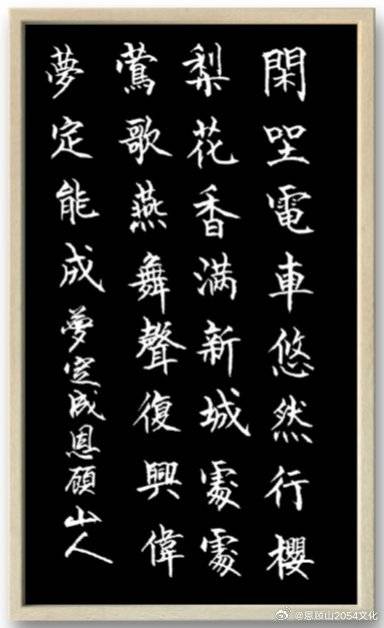 閑坐電車悠然行櫻
梨花香滿新城處處
鶯歌燕舞聲復興偉
夢定能成 夢定成恩頋山人
@恩顾山2054文化